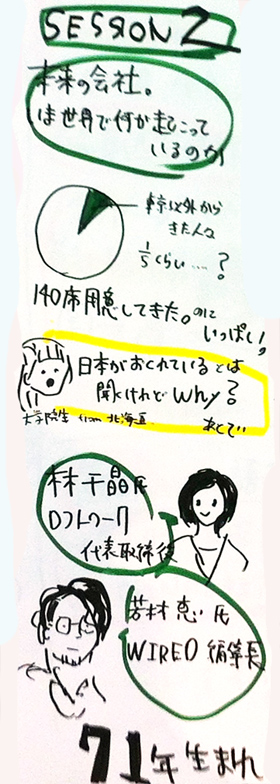 SESSION 2
未来の会社。
は世界で何が起こって
いるのか
東京以外から
きた人々
1/5くらい....?
140席用意してきた。のに
いっぱい!
日本がおくれているとは
聞くけれどWhy?
大学院生 from 北海道
あとで..
林千晶氏
ロフトワーク
代表取締役
若林恵氏
WIRED 編集長
71年生まれ